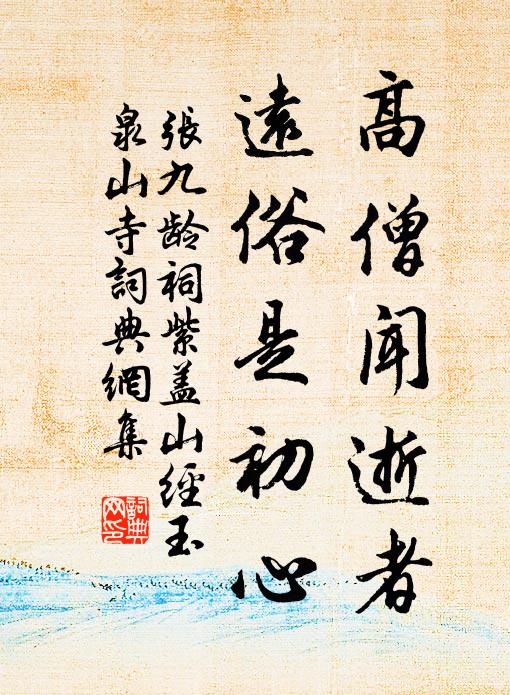 高僧聞逝者
遠俗是初心
張九齡祠紫蓋山經玉
泉山寺詞典網集
詞典网印